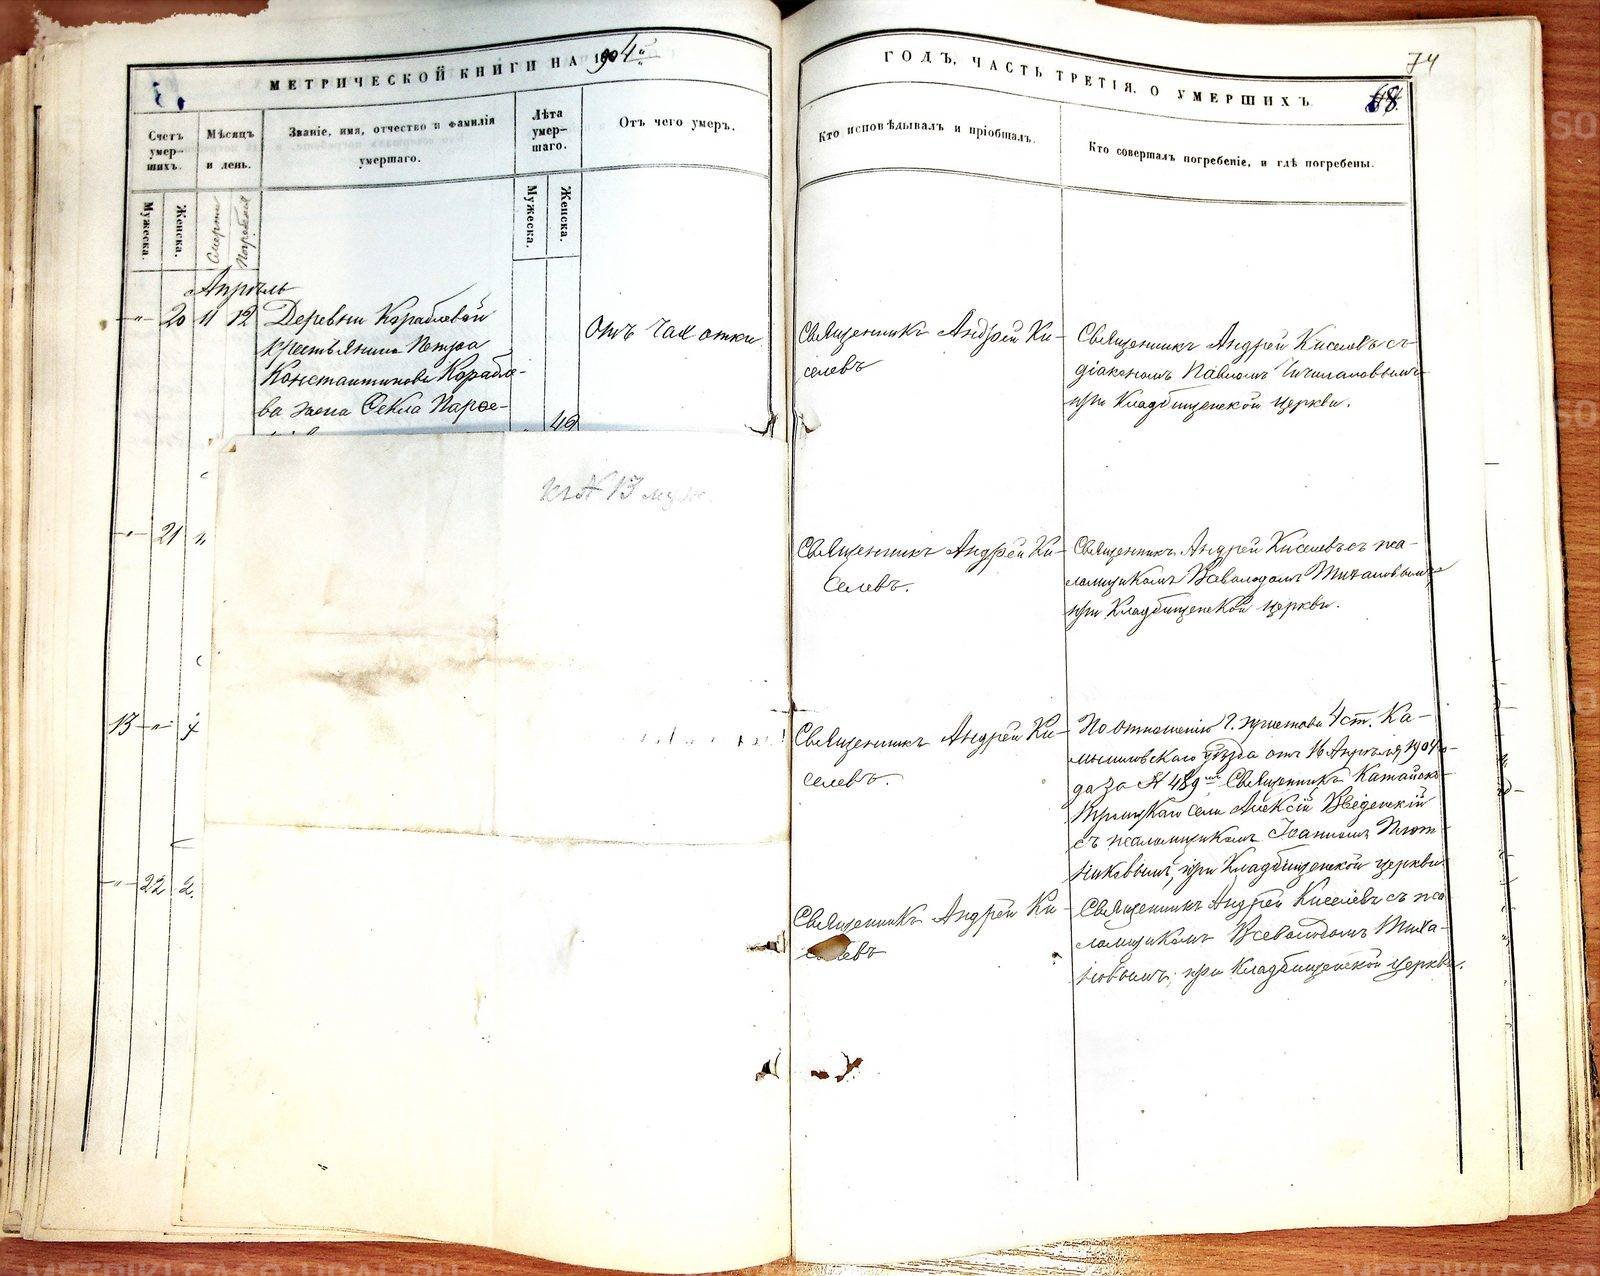 МЕТРИЧЕСКОЙ КНИГИ НА 1904й
ГОДЪ, ЧАСТЬ ТРЕТІЯ, О УМЕРШИХЪ.
74
68
Счетъ умер-шихъ.
Мѣсяцъ и день.
Званіе, имя, отчество и фамилія
умершаго.
Лѣта умер-шаго.
Отъ чего умеръ.
Кто исповѣдывалъ и пріобщалъ.
Кто совершалъ погребеніе, и гдѣ погребены.
Мужеска.
Женска.
Смерти
Погребенія
Мужеска.
Женска.
Апрѣль
-"- 20 11 12 Деревни Кораблевой
крестьянина Петра
Константинова Корабле-
ва жена Ѳекла Парѳе-
49
Отъ чахотки
Священникъ Андрей Ки-
селевъ
Священникъ Андрей Киселевъ съ
діакономъ Павломъ
при Кладбищенской церкви.
къ № 13 муж
-"- 21
Священникъ Андрей Ки-
селевъ.
Священникъ Андрей Киселевъ съ пса-
ломщикомъ Всеволодомъ Тихановымъ,
при Кладбищенской церкви.
13 -"-
Священникъ Андрей Ки-
селевъ.
По отношенію Г. Пристава 4 ст. Ка-
мышловскаго уѣзда отъ 16 Апрѣля 1904 го-
да за № 489мъ Священникъ Катайск-
Троицкаго села Алексій Введенскій
съ псаломщикомъ Іоанномъ Плот-
никовымъ, при Кладбищенской церкви.
-"- 22 2
Священникъ Андрей Ки-
селевъ
Священникъ Андрей Киселевъ съ пса
ломщикомъ Всеволодомъ Тиха-
новымъ, при Кладбищенской церкви.
METRIKI.GASO-URAL.RU
METRIKI.GASO